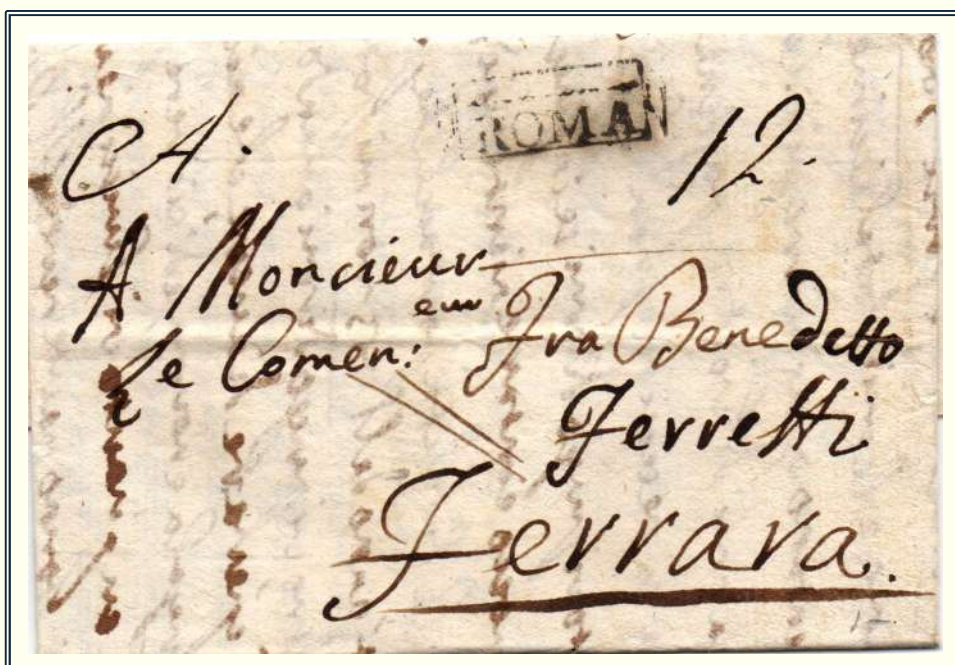 ROMA
12.
A Moncieur
Le Comen: Fra Benedetto
Ferretti
Ferrara.